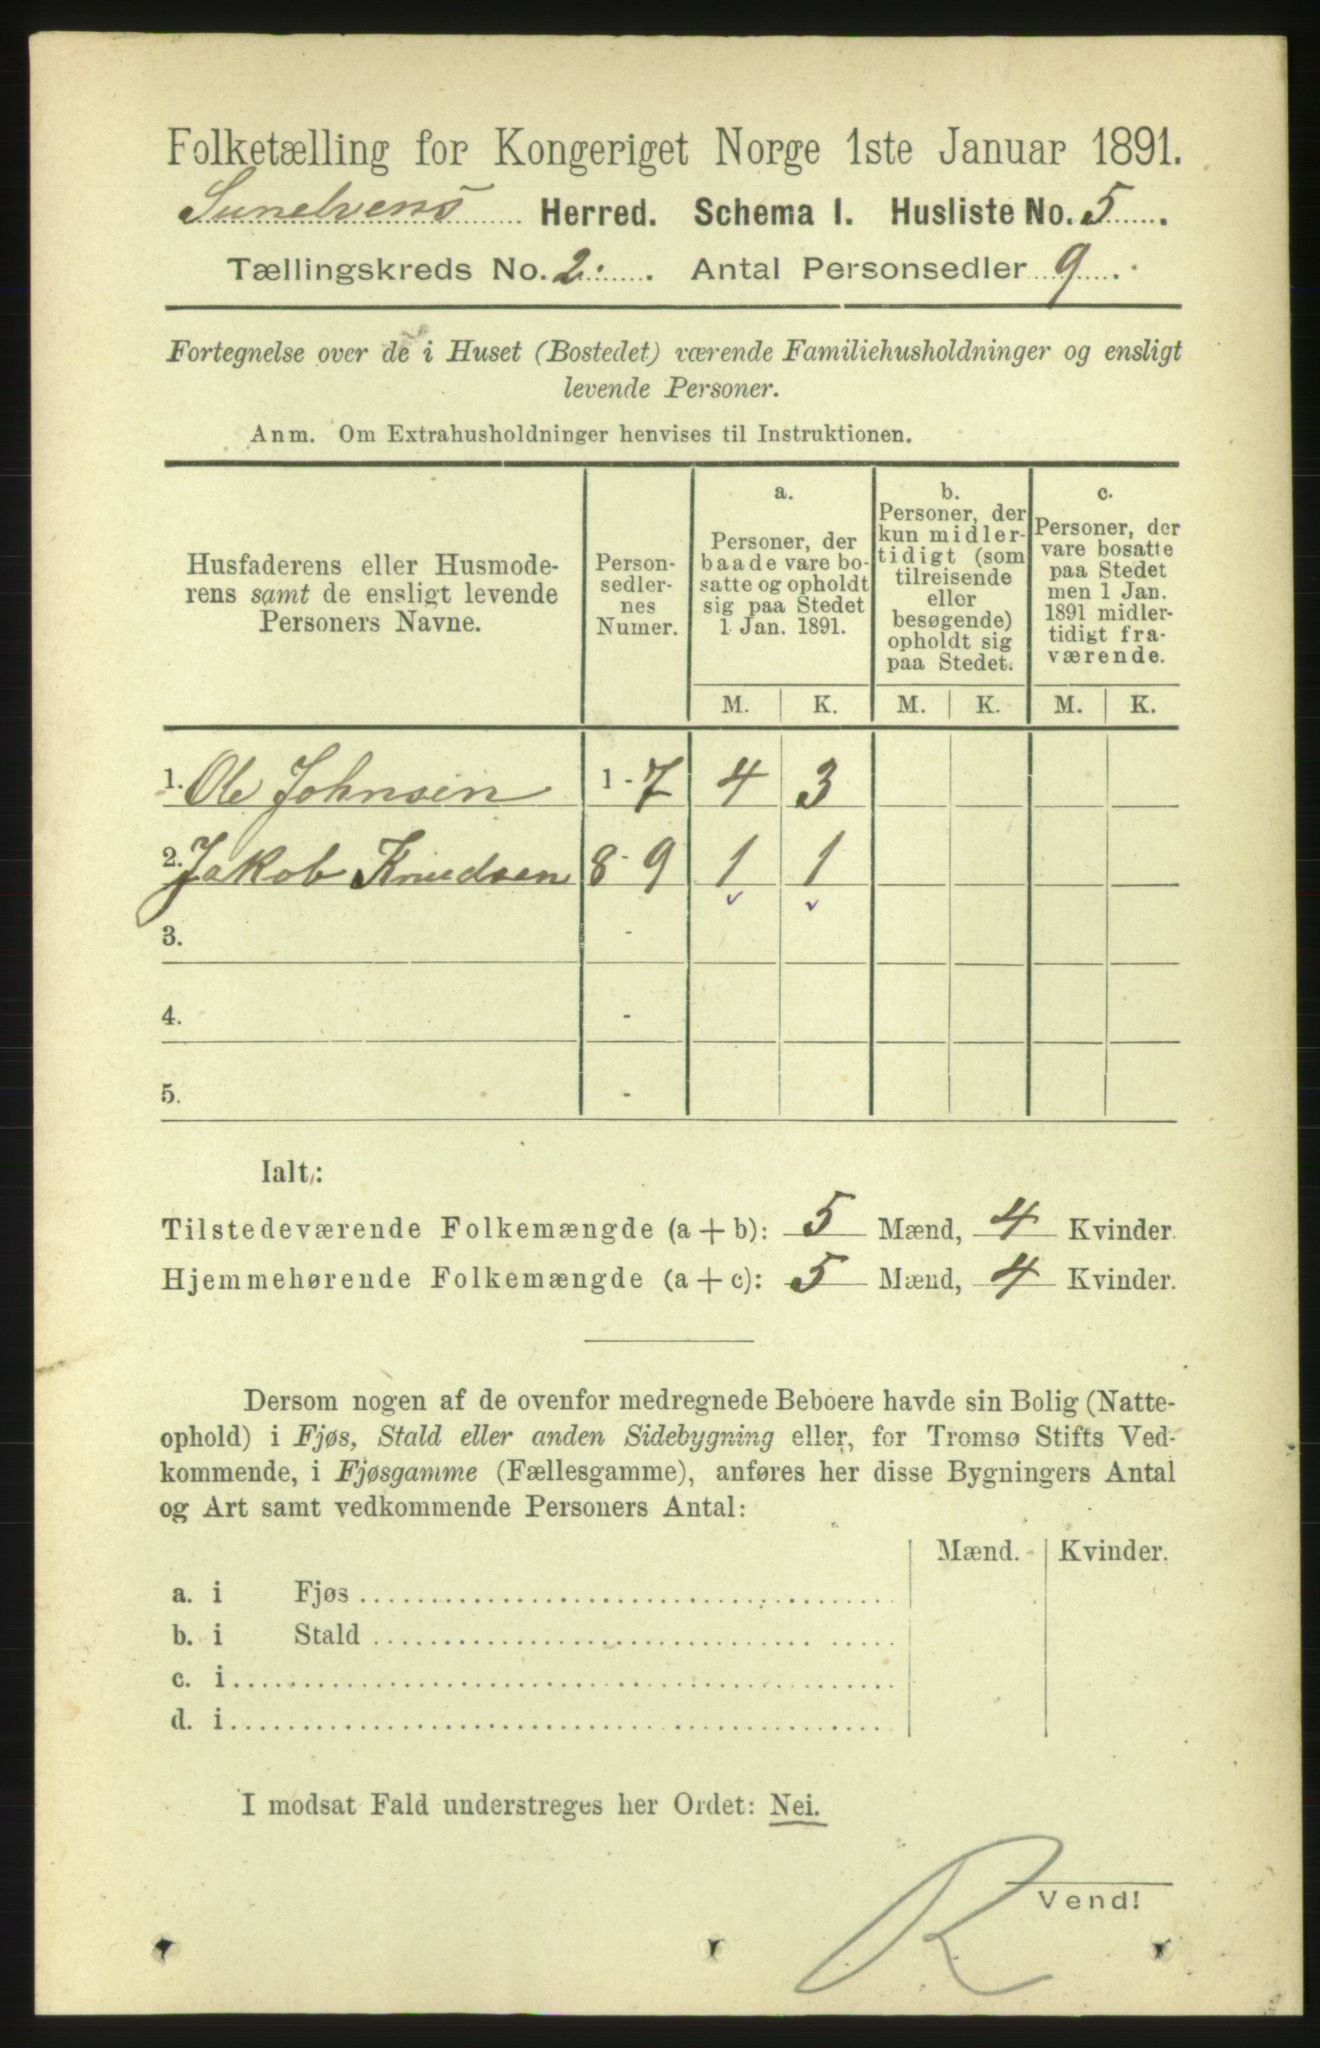 Folketælling for Kongeriget Norge 1ste Januar 1891.
Sunelvens Herred. Schema I. Husliste No. 5.
Tællingskreds No. 2. Antal Personsedler 9.
Fortegnelse over de i Huset (Bostedet) værende Familiehusholdninger og ensligt
levende Personer.
Anm. Om Extrahusholdninger henvises til Instruktionen.
Husfaderens eller Husmode-
rens samt de ensligt levende
Personers Navne.
Person-
sedler-
nes
Numer.
a.
Personer, der
baade vare bo-
satte og opholdt
sig paa Stedet
1 Jan. 1891.
b.
Personer, der
kun midler-
tidigt (som
tilreisende
eller
besøgende)
opholdt sig
paa Stedet.
c.
Personer, der
vare bosatte
paa Stedet
men 1 Jan.
1891 midler-
tidigt fra-
værende.
M. K. M. K. M. K.
1. Ole Johnsen 1 - 7 4 3
2. Jakob Knudsen 8 - 9 1 1
3. -
4. -
5. -
Ialt:
Tilstedeværende Folkemængde (a + b): 5 Mænd, 4 Kvinder.
Hjemmehørende Folkemængde (a + c): 5 Mænd, 4 Kvinder.
Dersom nogen af de ovenfor medregnede Beboere havde sin Bolig (Natte-
ophold) i Fjøs, Stald eller anden Sidebygning eller, for Tromsø Stifts Ved-
kommende, i Fjøsgamme (Fællesgamme), anføres her disse Bygningers Antal
og Art samt vedkommende Personers Antal:
Mænd. Kvinder.
a. i Fjøs
b. i Stald
c. i
d. i
I modsat Fald understreges her Ordet: Nei.
Vend!
R